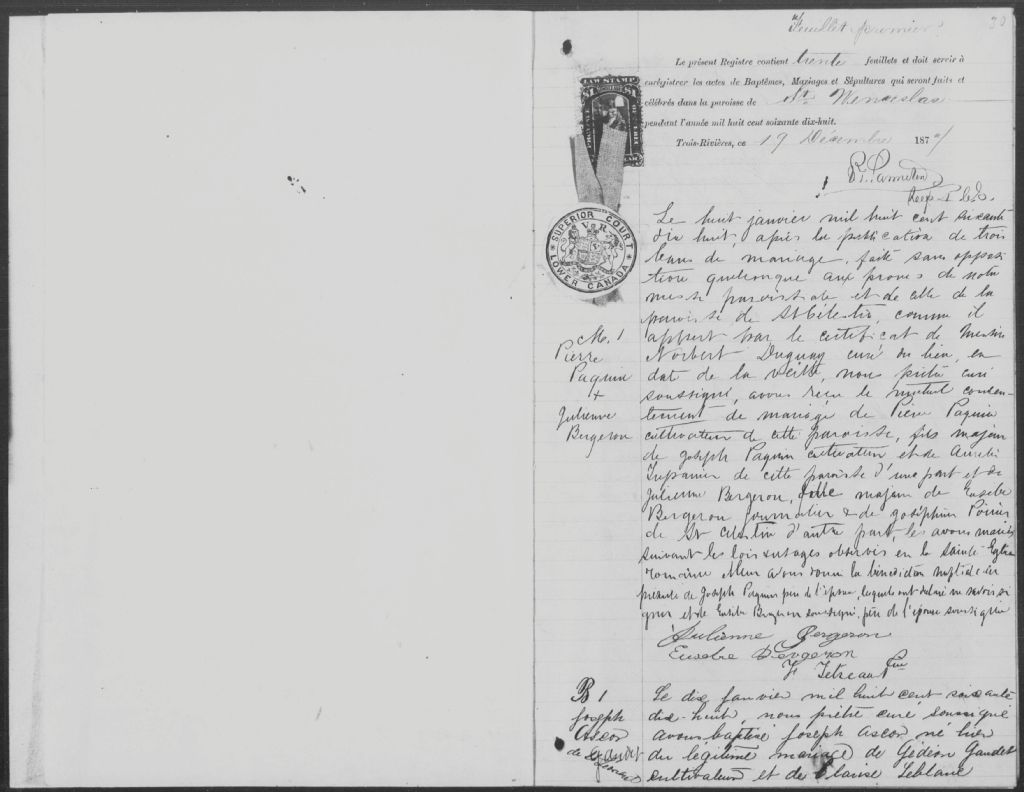 Feuillet premier
30
Le présent Registre contient trente feuillets et doit servir à
enrégistrer les actes de Baptêmes, Mariages et Sépultures qui seront faits et
célébrés dans la paroisse de St. Wenceslas
pendant l'année mil huit cent soixante dix-huit.
Trois-Rivières, ce 19 Décembre 1877
LAW STAMP
$1 $1
SUPERIOR COURT
V R
LOWER CANADA
Le huit janvier mil huit cent soixante
dix huit, après la publication de trois
bans de mariage, faite sans opposi
tion quelconque aux prones de notre
messe paroissiale et de celle de la
paroisse de St Célestin, comme il
appert par le certificat de Messire
Norbert Duguay curé du lieu, en
dat de la veille, nous prêtre curé
soussigné, avons reçu le mutuel consen-
tement de mariage de Pierre Paquin
cultivateur de cette paroisse, fils majeur
de Joseph Paquin cultivateur et de Aurélie
Trepanier de cette paroisse d'une part et de
Julienne Bergeron, fille majeure de Eusebe
Bergeron journalier & de Joséphine Poirier
de St Celestin d'autre part, les avons mariés
suivant les lois et usages observés en la sainte Eglise
romaine et leur avons donné la bénédiction nuptiale en
présence de Joseph Paquin père de l'époux, lequel a déclaré ne savoir si
gner et de Eusebe Bergeron soussigné, père de l'épouse soussignée
M. 1
Pierre
Paquin
+
Julienne
Bergeron
Julienne Bergeron
Eusebe Bergeron
F Tetreault Ptre
B 1
Joseph
Ascor
Gaudet
Le dix janvier mil huit cent soixante
dix-huit, nous prêtre curé soussigné
avons baptisé Joseph Ascor né hier
du légitime mariage de Gédéon Gaudet
cultivateur et de Elarise Leblanc